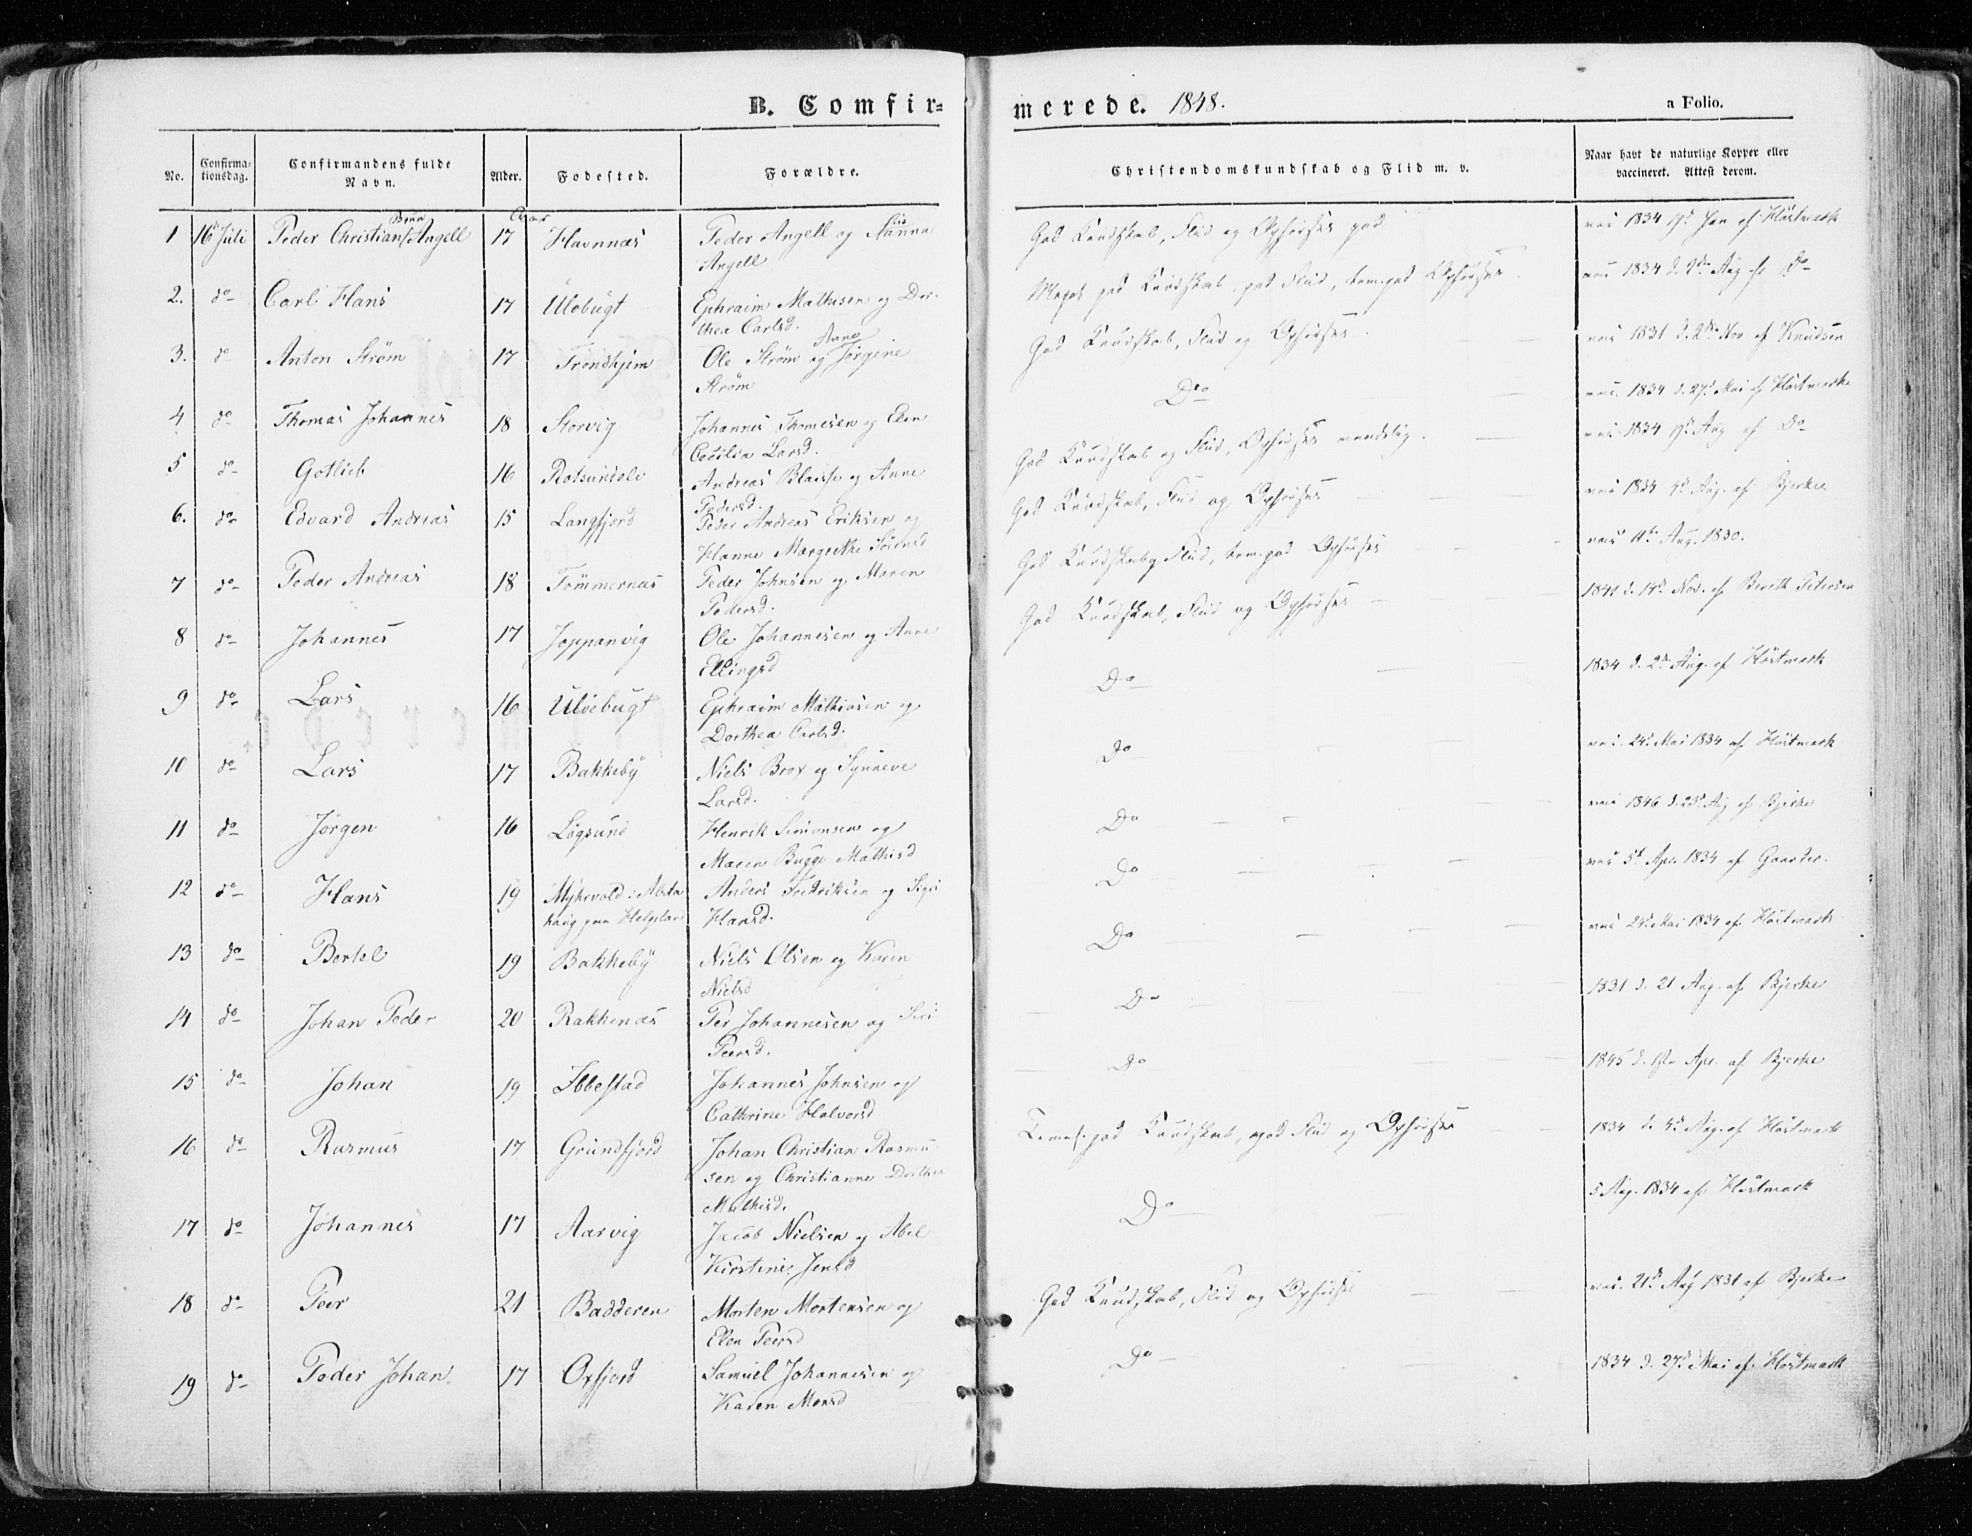 B. Comfir=
merede. 1848.
a Folio.
No.
Confirma-
tionsdag.
Confirmandens fulde
Navn.
Alder.
Fødested.
Forældre.
Christendomskundskab og Flid m. v.
Naar havt de naturlige Kopper eller
vaccineret. Attest derom.
1 16 Juli Peder Christian Angell 17 Havnnæs Peder Angell og Hanna
Angell
God Kundskab, Flid og Opførsel god
vac 1834 19d Jan af Høstmark
2. do Carl Hans 17 Uløbugt Ephraim Mathisen og Dor-
thea Carlsd.
Meget god Kundskab, god Flid, tem. god Opførsel
vac 1834 d. 9de Aug af Do
3. do Anton Strøm 17 Trondhjem Ole Strøm og Anne Jørgine
Strøm
God Kundskab, Flid og Opførsel
vac 1831 d. 2de Nov af Knudsen
4 do Thomas Johannes 18 Storvig Johannes Thomesen og Elen
Cecilia Larsd.
Do
vac. 1834 d. 27d Mai af Høstmark
5 do Gotlieb 16 Rotsundelv Andreas Blaisse og Anne
Pedersd.
God Kundskab og Flid, Opførsel
vac. 1834 19d Aug af Do
6. do Edvard Andreas 15 Langfjord Peder Andreas Eriksen og
Hanne Margrethe Sørensd
God Kundskab, Flid og Opførsel
vac 1834 4d Aug. af Bjerke
7 do Peder Andreas 18 Tømmernæs Peder Johnsen og Maren
Pedersd.
God Kundskab og Flid, tem. god Opførsel
vac 11te Aug. 1830.
8 do Johannes 17 Joppanvig Ole Johannesen og Anne
Ellingsd
God Kundskab, Flid og Opførsel
1841 d. 14d Nov. af Bereth Petersen
9 do Lars 16 Ulvebugt Ephraim Mathiasen og
Dorthea Carlsd.
Do
1834 d. 2d Aug. af Høstmark
10 do Lars 17 Bakkeby Niels Brox og Synneve
Larsd.
Do
vac. 24d Mai 1834 af Høstmark
11 do Jørgen 16 Løgsund Henrik Simonsen og
Maren Bugge Mathisd
Do
vac 1846 d. 23d Aug af Bjerke
12 do Hans 19 Myhrvold i Alsta
houg paa Helgeland Anders Fredriksen og Sigri
Hansd.
Do
vac 5d Apr. 1834 af Gaarder.
13 do Bertel 19 Bakkeby Niels Olsen og Karen
Nielsd
Do
vac 24d Mai 1834 af Høstmark
14 do Johan Peder 20 Rakkenæs Per Johannesen og Siri
Peersd.
Do
1831 d. 21 Aug. af Bjerke
15 do Johan 19 Ibbestad Johannes Johnsen og
Cathrine Halvorsd
Do
1845 d. Apr. af Bjerke
16 do Rasmus 17 Grundfjord Johan Christian Rasmu-
sen og Christianne Dorthea
Mathisd.
god Kundskab, god Flid og Opførsel
1834 d. 4d Aug. af Høstmark
17 do Johannes 17 Aarvig Jacob Nielsen og Abel
Kirstine Jensd
Do
5 Aug. 1834 af Høstmark
18 do Peer 21 Badderen Morten Mortensen og
Elen Peersd
God Kundskab, Flid og Opførsel
vac. 21d Aug 1831 af Bjerke
19 do Peder Johan 17 Oxfjord Samuel Johannesen og
Karen Monsd
Do
1834 d. 27d Mai af Høstmark